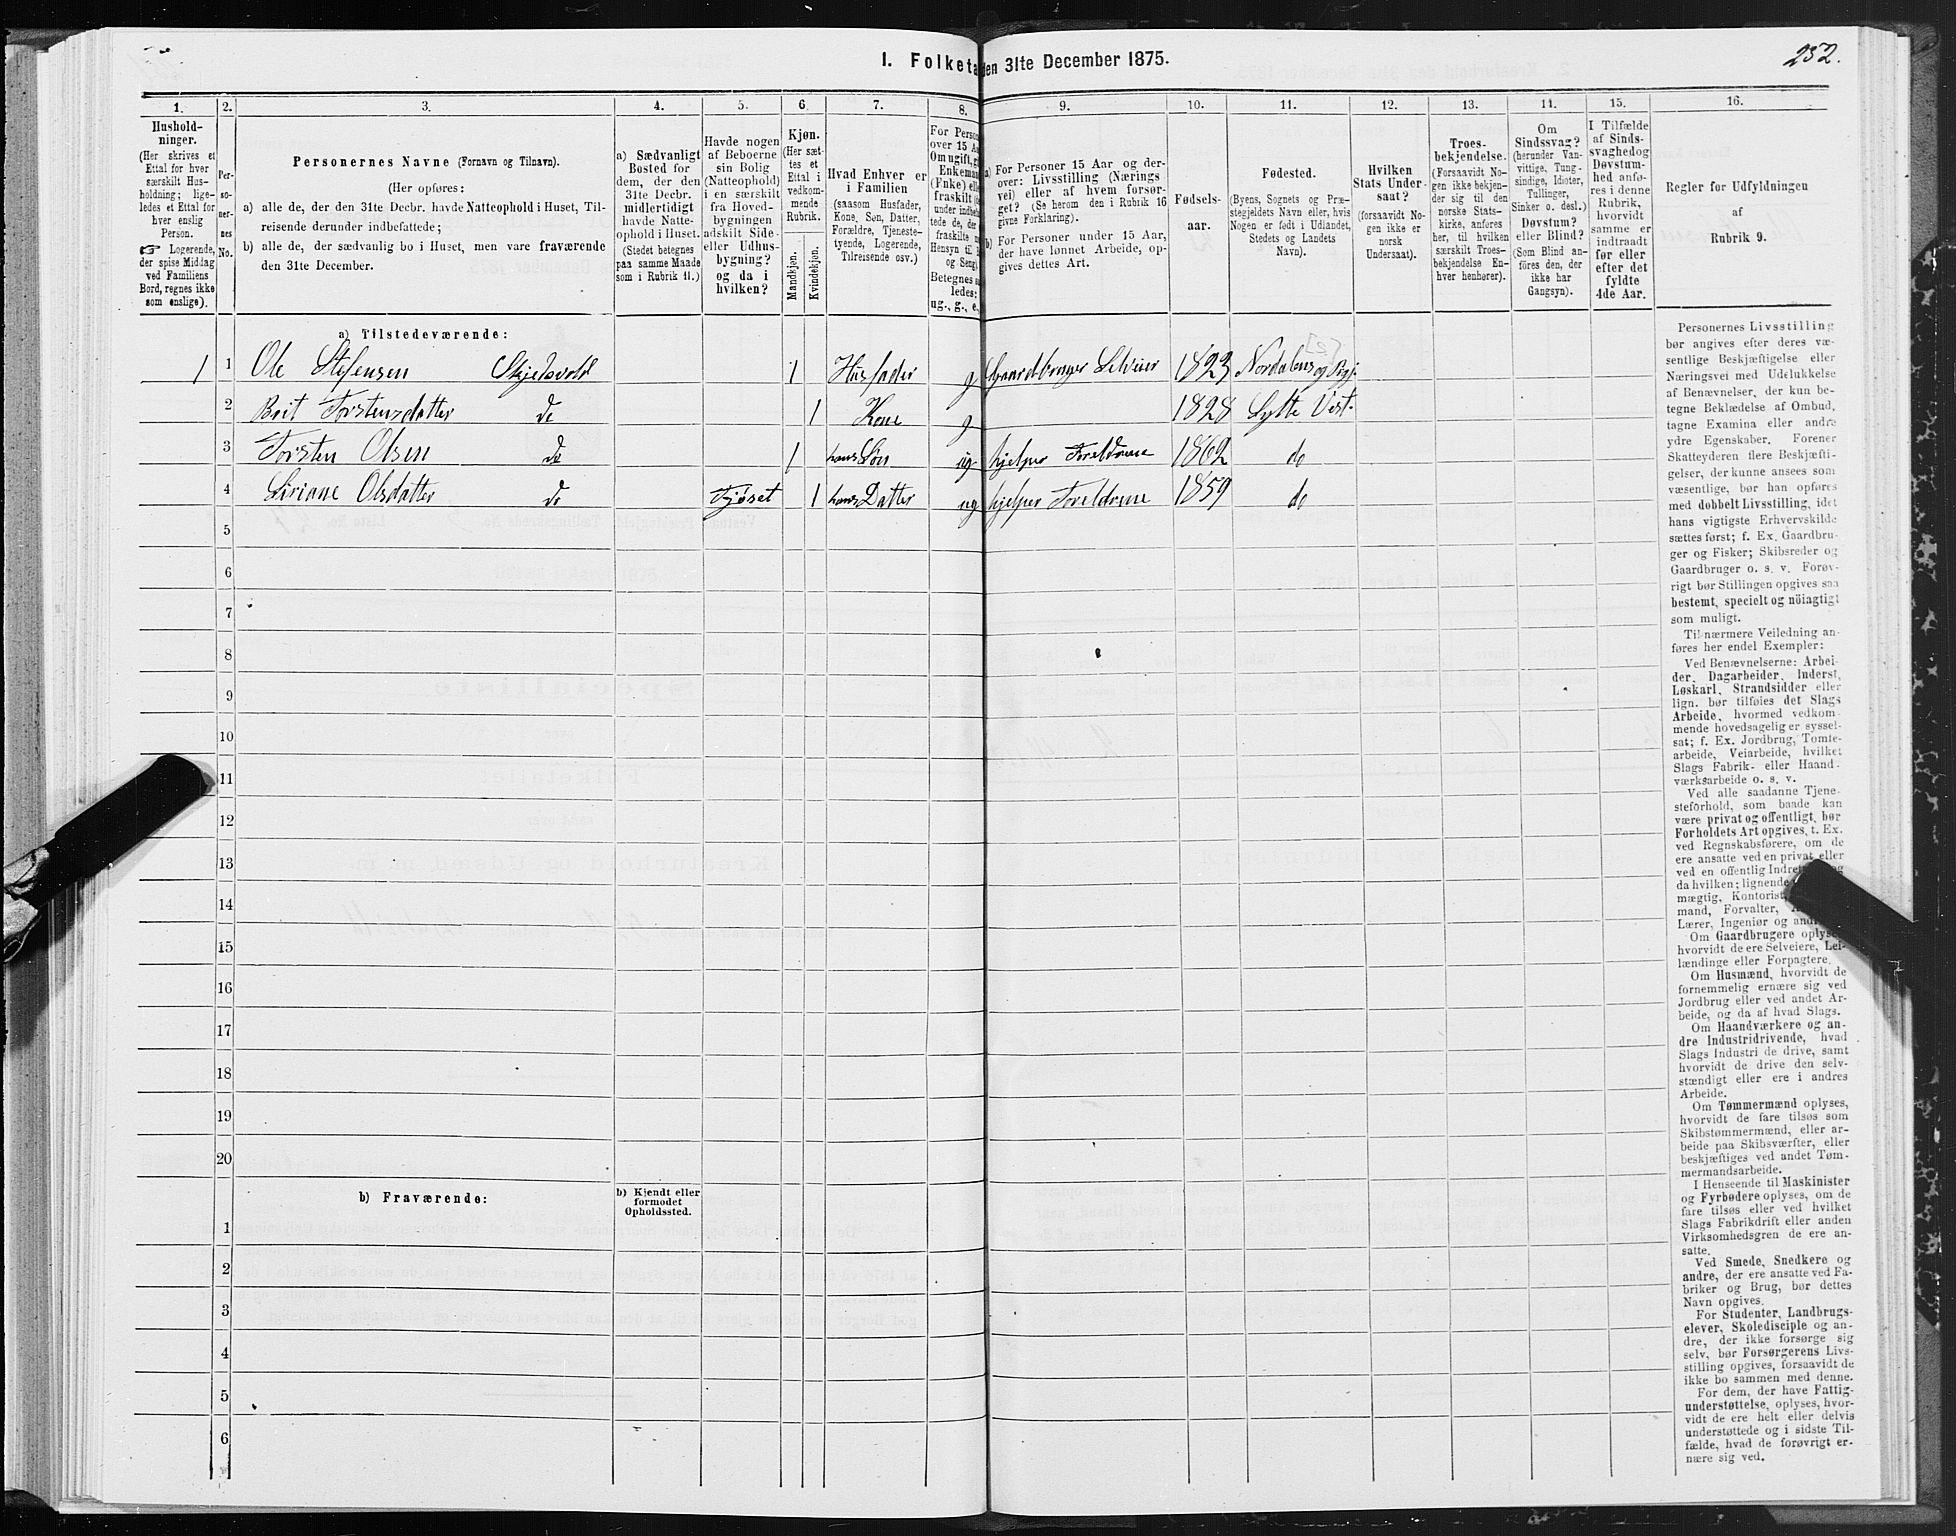 252.
I. Folketa den 31te December 1875.
1. 2. 3. 4. 5. 6. 7. 8. 9. 10. 11. 12. 13. 14. 15. 16.
Hushold-
ninger.
(Her skrives et
Ettal for hver
særskilt Hus-
holdning; lige-
ledes et Ettal for
hver enslig
Person.
☞ Logerende,
der spise Middag
ved Familiens
Bord, regnes ikke
som enslige).
Per-
so-
ner-
nes
No.
Personernes Navne (Fornavn og Tilnavn).
(Her opføres:
a) alle de, der den 31te Decbr. havde Natteophold i Huset, Til-
reisende derunder indbefattede;
b) alle de, der sædvanlig bo i Huset, men vare fraværende
den 31te December.
a) Sædvanligt
Bosted for
dem, der den
31te Decbr.
midlertidigt
havde Natte-
ophold i Huset.
(Stedet betegnes
paa samme Maade
som i Rubrik 11.)
Havde nogen
af Beboerne
sin Bolig
(Natteophold)
i en særskilt
fra Hoved-
bygningen
adskilt Side-
eller Udhus-
bygning?
og da i
hvilken?
Kjøn.
(Her sæt-
tes et
Ettal i
vedkom-
mende
Rubrik.
Mandkjøn.
Kvindekjøn.
Hvad Enhver er
i Familien
(saasom Husfader,
Kone, Søn, Datter,
Forældre, Tjeneste-
tyende, Logerende,
Tilreisende osv.)
For Perso
over 15 Aa
Om ugift, g
Enkeman
(Fnke) ell
fraskilt (
under indbe
tede de, der
fraskilte
Hensyn til
og Seng)
Betegnes s
ledes:
ug., g., e.,
a) For Personer 15 Aar og der-
over: Livsstilling (Nærings
vei) eller af hvem forsør-
get? (Se herom den i Rubrik 16
givne Forklaring).
b) For Personer under 15 Aar,
der have lønnet Arbeide, op-
gives dettes Art.
Fødsels-
aar.
Fødested.
(Byens, Sognets og Præ-
stegjeldets Navn eller, hvis
Nogen er født i Udlandet,
Stedets og Landets
Navn).
Hvilken
Stats Under-
saat?
(forsaavidt No-
gen ikke er
norsk
Undersaat).
Troes-
bekjendelse.
(Forsaavidt No-
gen ikke bekjen-
der sig til den
norske Stats-
kirke, anføres
her, til hvilken
særskilt Troes-
bekjendelse En-
hver henhører).
Om
Sindssvag?
(herunder Van-
vittige, Tung-
sindige, Idioter,
Tullinger,
Sinker o. desl.)
Døvstum?
eller Blind?
(Som Blind an-
føres den, der
ikke har
Gangsyn).
I Tilfælde
af Sinds-
svaghed og
Døvstum-
hed anfø-
res i denne
Rubrik,
hvorvidt
samme er
indtraadt
før eller
efter det
fyldte
4de Aar.
Regler for Udfyldningen
af
Rubrik 9.
a) Tilstedeværende:
1 1 Ole Stefensen Skjelsvold 1 Husfader g Gaardbruger Selveier 1823 Nordalens og Pgj.
2 Berit Torstensdatter do 1 Kone g 1828 Lytte Vest.
3 Torsten Olsen do 1 hans Søn ug hjelper Foreldrene 1862 do
4 Siriane Olsdatter do Fjøset 1 hans Datter ug hjelper Foreldrene 1859 do
5
6
7
8
9
10
11
12
13
14
15
16
17
18
19
20
b) Fraværende:
b) Kjendt eller
formodet
Opholdssted.
1
2
3
4
5
6
Personernes Livsstilling
bør angives efter deres væ-
sentlige Beskjæftigelse eller
Næringsvei med Udelukkelse
af Benævnelser, der kun be-
tegne Beklædelse af Ombud,
tagne Examina eller andre
ydre Egenskaber. Forener
Skatteyderen flere Beskjæfti-
gelser, der kunne ansees som
væsentlige, bør han opføres
med dobbelt Livsstilling, idet
hans vigtigste Erhvervskilde
sættes først; f. Ex. Gaardbru-
ger og Fisker; Skibsreder og
Gaardbruger o. s. v. Forøv-
rigt bør Stillingen opgives saa
bestemt, specielt og nöiagtigt
som muligt.
Til nærmere Veiledning an-
føres her endel Exempler:
Ved Benævnelserne: Arbei-
der, Dagarbeider, Inderst,
Løskarl, Strandsidder eller
lign. bør tilføies det Slags
Arbeide, hvormed vedkom-
mende hovedsagelig er syssel-
sat; f. Ex. Jordbrug, Tomte-
arbeide, Veiarbeide, hvilket
Slags Fabrik- eller Haand-
værksarbeide o. s. v.
Ved alle saadanne Tjene-
steforhold, som baade kan
være privat og offentligt, bør
Forholdets Art opgives, t. Ex.
ved Regnskabsførere, om de
ere ansatte ved en privat eller
ved en offentlig Indret
da hvilken; lignende
mægtig, Kontorist,
mand, Forvalter,
Lærer, Ingeniør og and
Om Gaardbrugere oplyse
hvorvidt de ere Selveiere, Lei-
lændinge eller Forpagtere.
Om Husmænd, hvorvidt de
fornemmelig ernære sig ved
Jordbrug eller ved andet Ar-
beide, og da af hvad Slags.
Om Haandværkere og an-
dre Industridrivende, hvad
Slags Industri de drive, samt
hvorvidt de drive den selv-
stændigt eller ere i andres
Arbeide.
Om Tømmermænd oplyses,
hvorvidt de fare tilsøs som
Skibstømmermænd, eller ar-
beide paa Skibsværfter, eller
beskjæftiges ved andet Tøm-
mermandsarbeide.
I Henseende til Maskinister
og Fyrbødere oplyses, om de
fare tilsøs eller ved hvilket
Slags Fabrikdrift eller anden
Virksomhedsgren de ere an-
satte.
Ved Smede, Snedkere og
andre, der ere ansatte ved Fa-
briker og Brug, bør dettes
Navn opgives.
For Studenter, Landbrugs-
elever, Skoledisciple og an-
dre, der ikke forsørge sig
selv, bør Forsørgerens Livs-
stilling opgives, forsaavidt de
ikke bo sammen med denne.
For dem, der have Fattig-
understøttelse, oplyses, hvor-
vidt de ere helt eller delvis
understøttede og i sidste Til-
fælde, hvad de forøvrigt er-
nære sig ved.